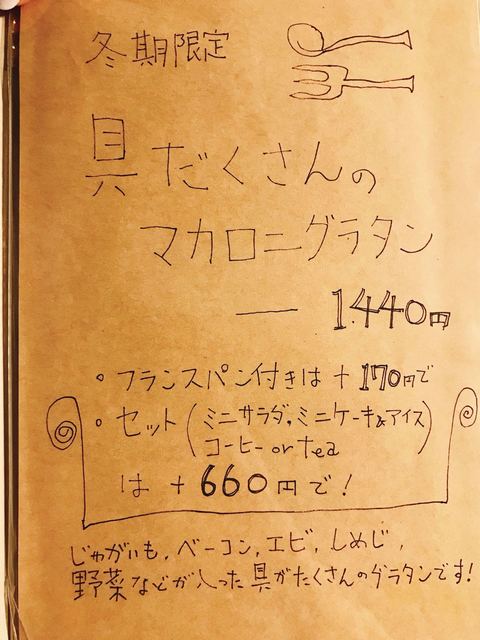 冬期限定
具だくさんの
マカロニグラタン
— 1.440円
・フランスパン付きは + 170円で
・セット(ミニサラダ,ミニケーキ&アイス
コーヒー or tea)
は + 660円で!
じゃがいも,ベーコン,エビ,しめじ,
野菜などが入った具がたくさんのグラタンです!